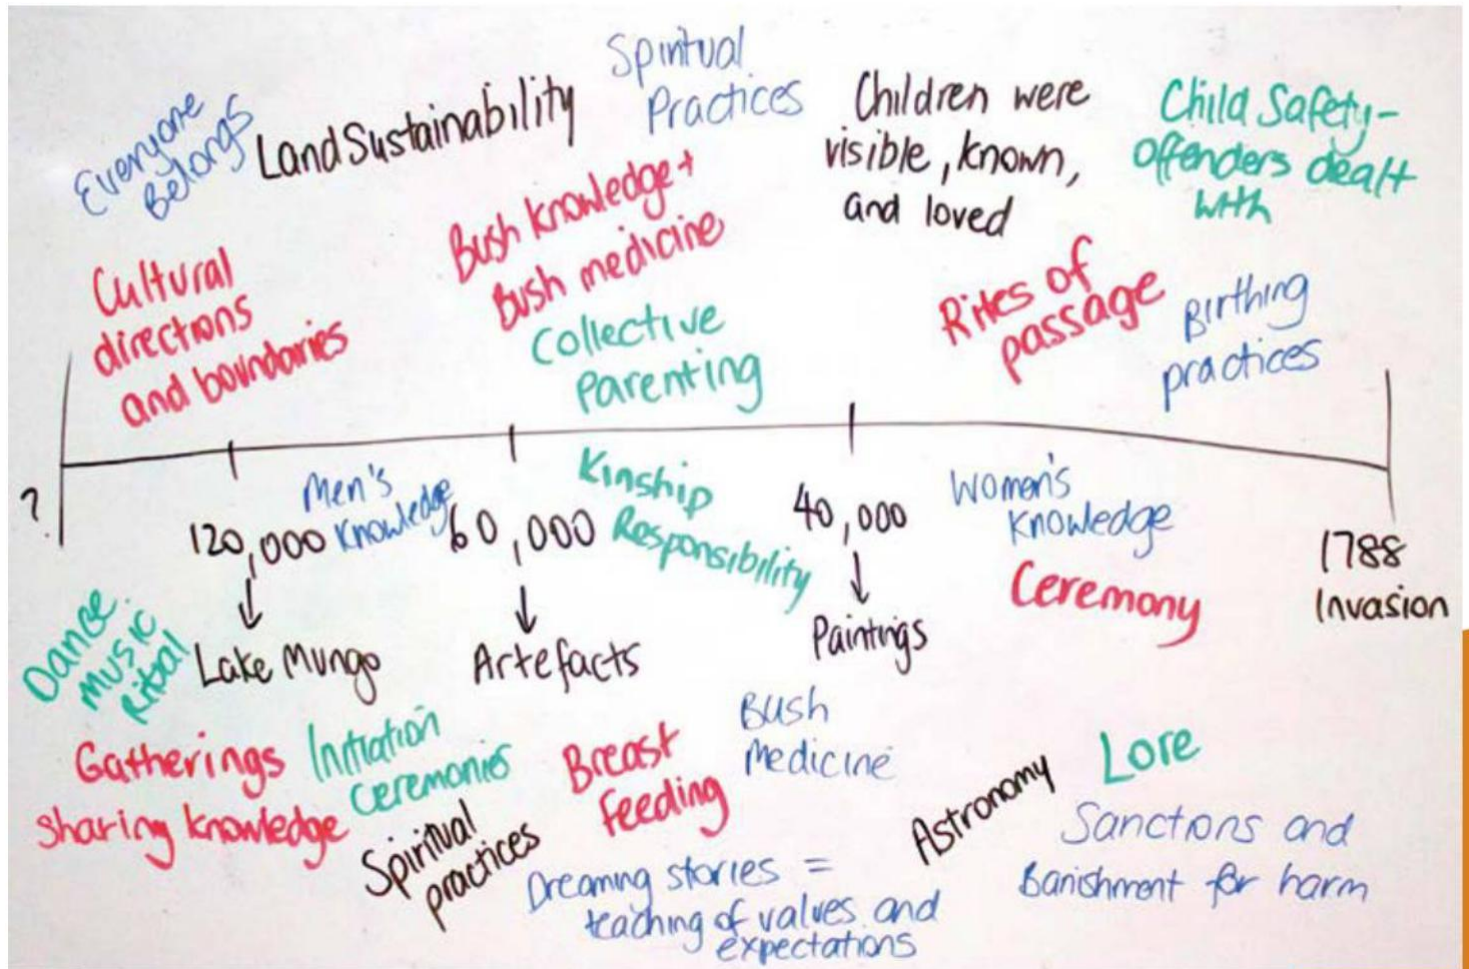 Everyone
Belongs
Land Sustainability
Spiritual
Practices
Children were
visible, known,
and loved
Child Safety-
offenders dealt
with
Cultural
directions
and boundaries
Bush knowledge +
Bush medicine
Collective
Parenting
Rites of
passage
Birthing
practices
?
120,000
Lake Mungo
Men's
Knowledge
60,000
Artefacts
Kinship
Responsibility
40,000
Paintings
Women's
Knowledge
Ceremony
1788
Invasion
Dance
Music
Ritual
Gatherings
sharing knowledge
Initiation
ceremonies
Spiritual
practices
Breast
feeding
Bush
Medicine
Dreaming stories =
teaching of values and
expectations
Astronomy
Lore
Sanctions and
Banishment for harm